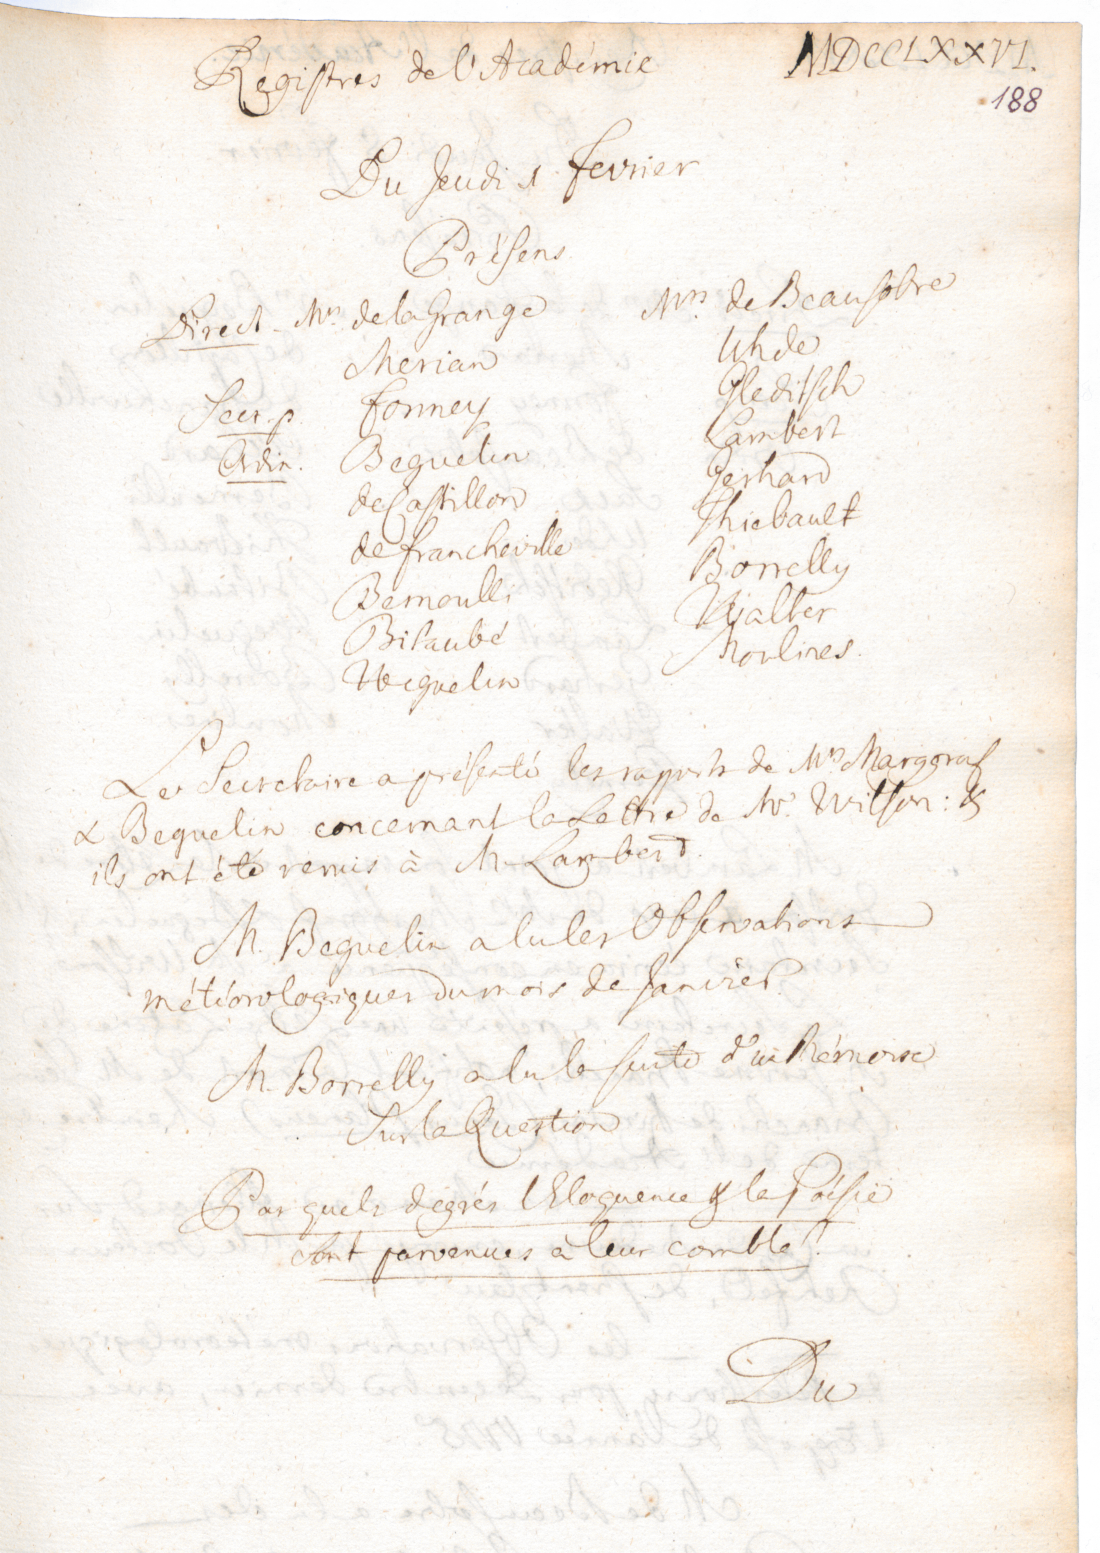 Régistres de l'Académie MDCCLXXVI.
188
Du Jeudi 1 fevrier
Présens
Direct. Mrs. de la Grange
Merian
Secr. p. formey
Ordin. Beguelin
de Castillon
de francheville
Bernoulli
Bitaubé
Weguelin
Mrs. de Beausobre
Uhde
Gleditsch
Lambert
Gerhard
Thiebault
Borrelly
Walter
Moulines.
Le Secretaire a présenté les rapports de Mrs Marggraf
& Beguelin concernant la Lettre de Mr. Wilson: &
ils ont été remis à M. Lambert.
M. Beguelin a lu les Observations
météorologiques du mois de Janvier.
M. Borrelly a lu la suite d'un Mémoire
sur la Question
Par quels degrés l'Eloquence & la Poésie
sont parvenues à leur comble?
Du